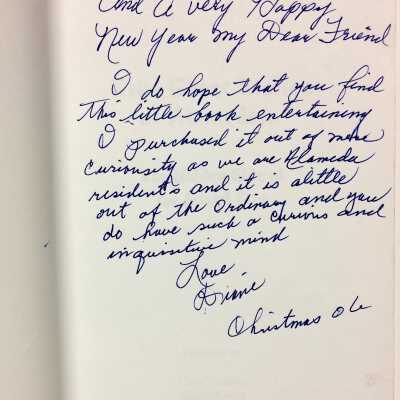 And A very Happy
New Year My Dear Friend
I do hope that you find
this little book entertaining
I purchased it out of mere
Curiousity as we are Alameda
residents and it is alittle
out of the Ordinary and you
do have such a curious and
inquisitive mind
Love,
Diane
Christmas 06